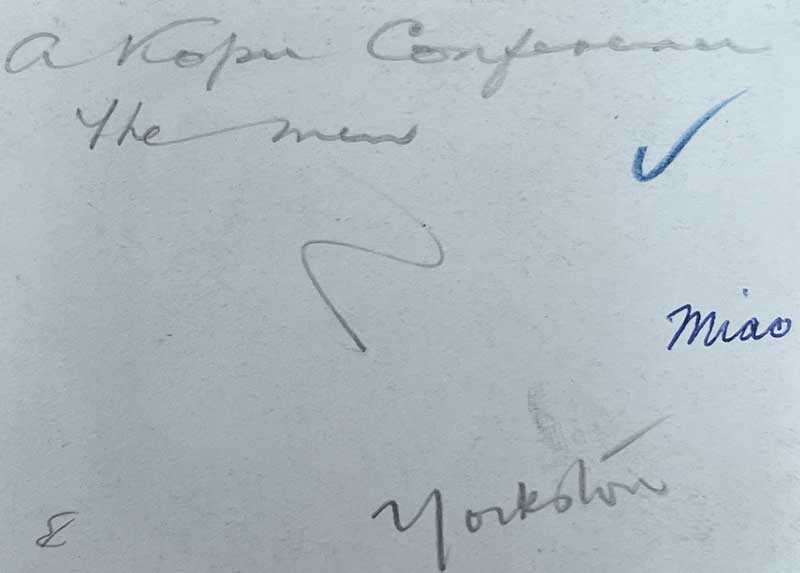 A Kopu Conference
The men
Miao
Yorkston
8